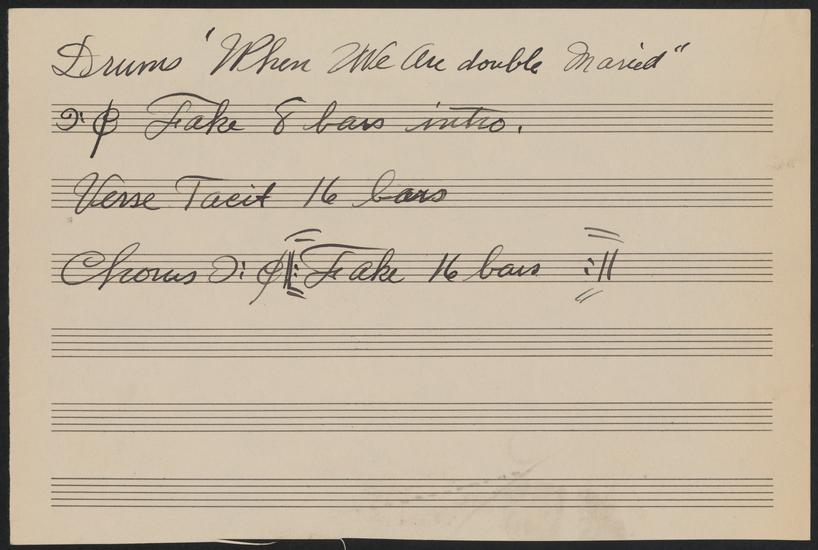 Drums "When We Are double Maried"
Fake 8 bars intro.
Verse Tacit 16 bars
Chorus Fake 16 bars